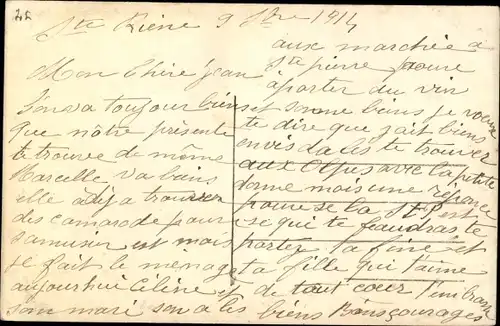 22
Ste Rière 9 bre 1914
Mon chère jean
Son va toujour bien
que nôtre présente
te trouvee de même
Marcelle va biens
elle a dejà trouver
des camarade pour
samuser et mois
je fait le ménage
aujourhui Céline et
son mari son a les
aux marchée a
Ste pierre pour
aporter du vin
et sonne biens je veux
te dire que jait biens
envis da les te trouver
aux Alpes avec la petite
donne mois une réponce
pour se la st. P est
se qui te faudras te
portez la fine et
ta fille qui t'aime
de tout coeur t'embrase
biens Bonscourages